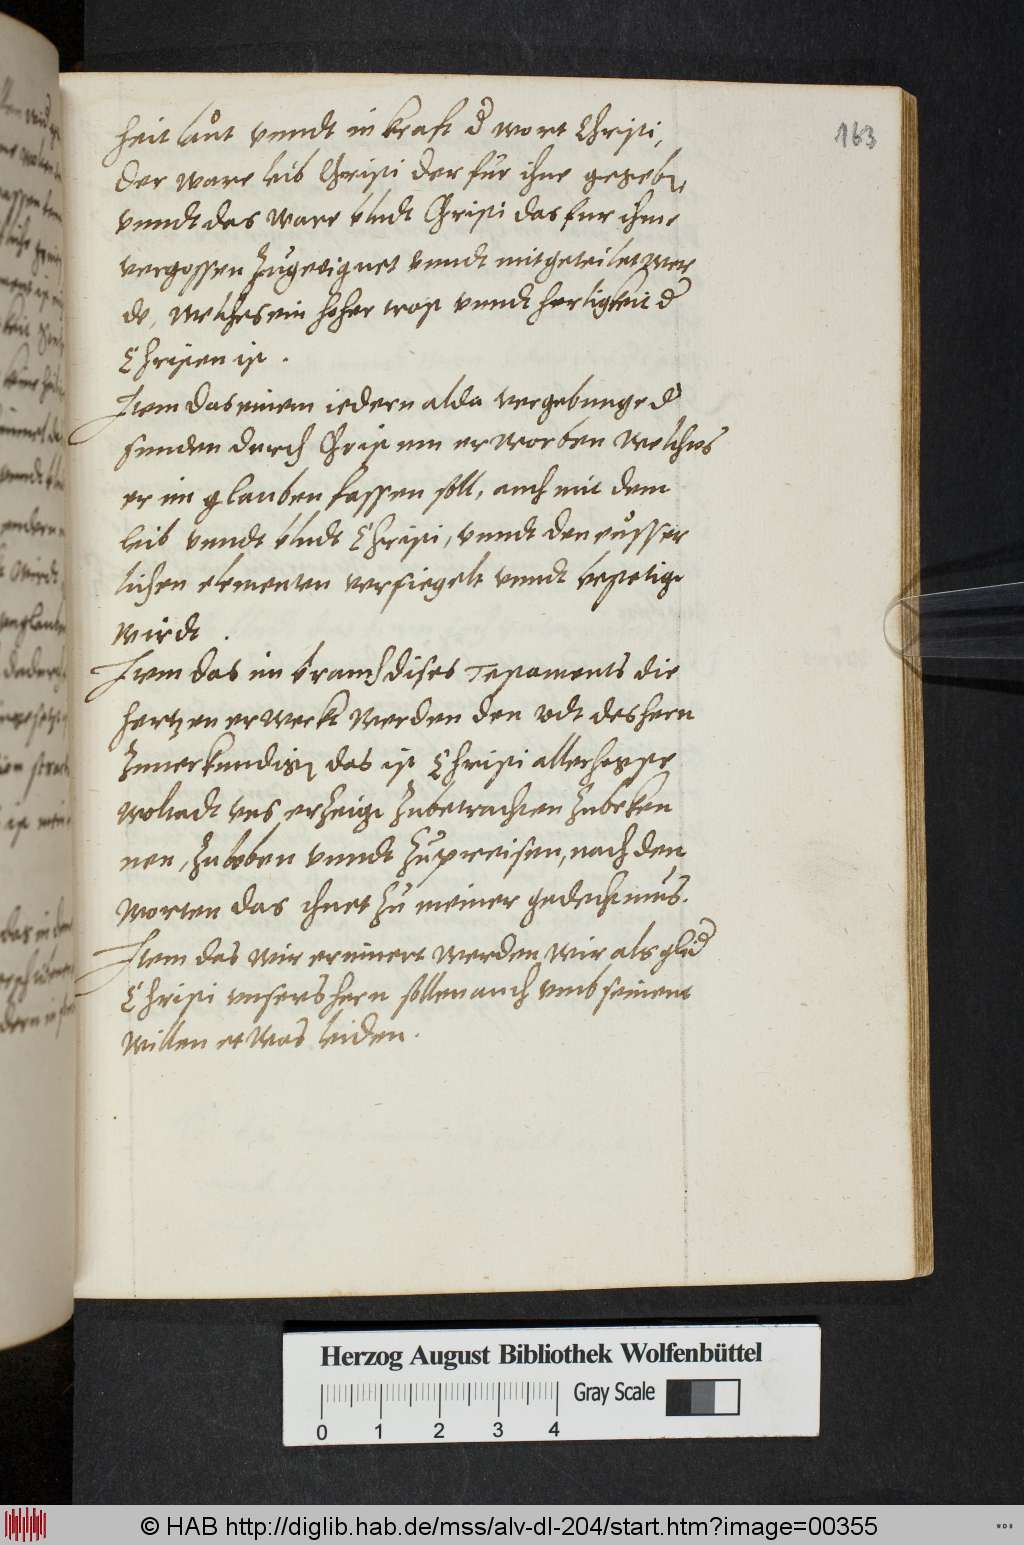 163
heit laut vnndt in kraft d wort Christi,
der ware leib Christi der für ihne gegeben
vnndt das ware bludt Christi das fur ihme
vergossen zugeeignet vnndt mitgeteilet wer
de, welches ein hoher trost vnndt herligkeit d
Christen ist.
Item das einem iedern alda vergebunge d
sunden durch Christum erworben welches
er im glauben fassen soll, auch mit dem
leib vnndt bludt Christi, vnndt den eüsser
lichen elementen versiegelt vnndt bestetigt
wirdt.
Item das im brauch dises Testaments die
hertzen erweckt werden den todt des hern
zuuerkundigen das ist Christi allerhogste
woltadt vns erzeigt zubetrachten zubeken
nen, zuloben vnndt zu preisen, nach den
worten das thuet zu meiner gedechtnus.
Item das wir erinnert werden wir als glid
Christi vnsers hern sollen auch vmb seinent
willen etwas leiden.
Herzog August Bibliothek Wolfenbüttel
Gray Scale
0 1 2 3 4
© HAB http://diglib.hab.de/mss/alv-dl-204/start.htm?image=00355